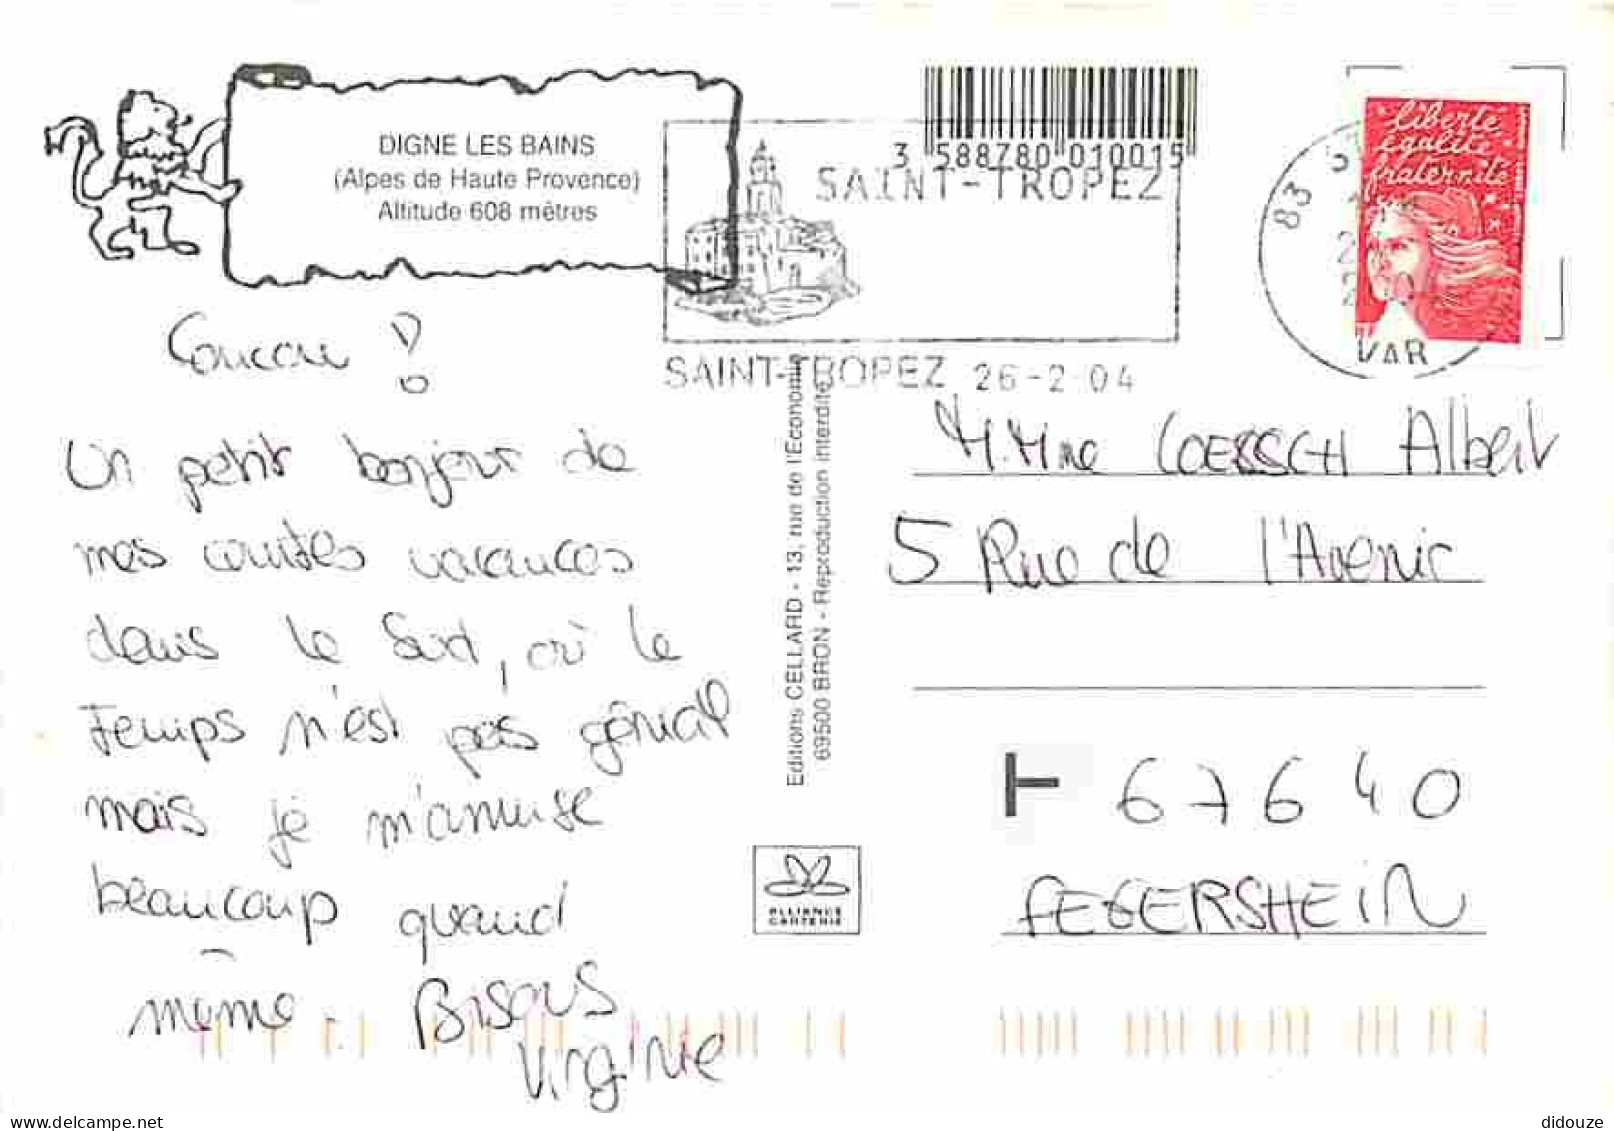 DIGNE LES BAINS
(Alpes de Haute Provence)
Altitude 608 mètres
3 588780 010015
SAINT-TROPEZ
SAINT-TROPEZ 26-2-04
83
VAR
liberté
égalité
fraternité
Coucou !
Un petit bonjour de
mes courtes vacances
dans le Sud, où le
Temps n'est pas génial
mais je m'amuse
beaucoup quand
même. Bisous
Virginie
Editions CELLARD - 13, rue de l'Economie
69500 BRON - Reproduction interdite
ALLIANCE
CARTERIE
M.Mme LOERSCH Albert
5 Rue de l'Avenir
T 67640
FEGERSHEIN
didouze